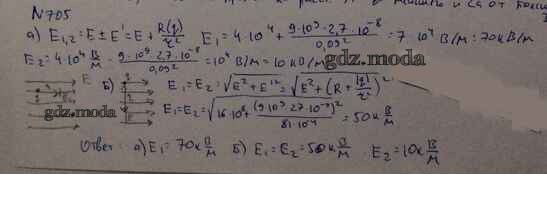 N 705
а) E₁,₂ = E ± E' = E + R(q)/r² E₁ = 4·10⁴ + 9·10⁹·2,7·10⁻⁸/0,09² = 7·10⁴ В/м = 70кВ/м
E₂ = 4·10⁴ В/м - 9·10⁹·2,7·10⁻⁸/0,09² = 10⁴ В/м = 10 кВ/м
Б) E₁ = E₂ = √E² + E'² = √E² + (R + |q|/r²)²
gdz.moda
gdz.moda
E₁ = E₂ = √16·10⁸ + (9·10⁹·27·10⁻⁹)²/81·10⁻⁴ = 50к В/м
Ответ: а) E₁ = 70к В/м Б) E₁ = E₂ = 50к В/м . E₂ = 10к В/м